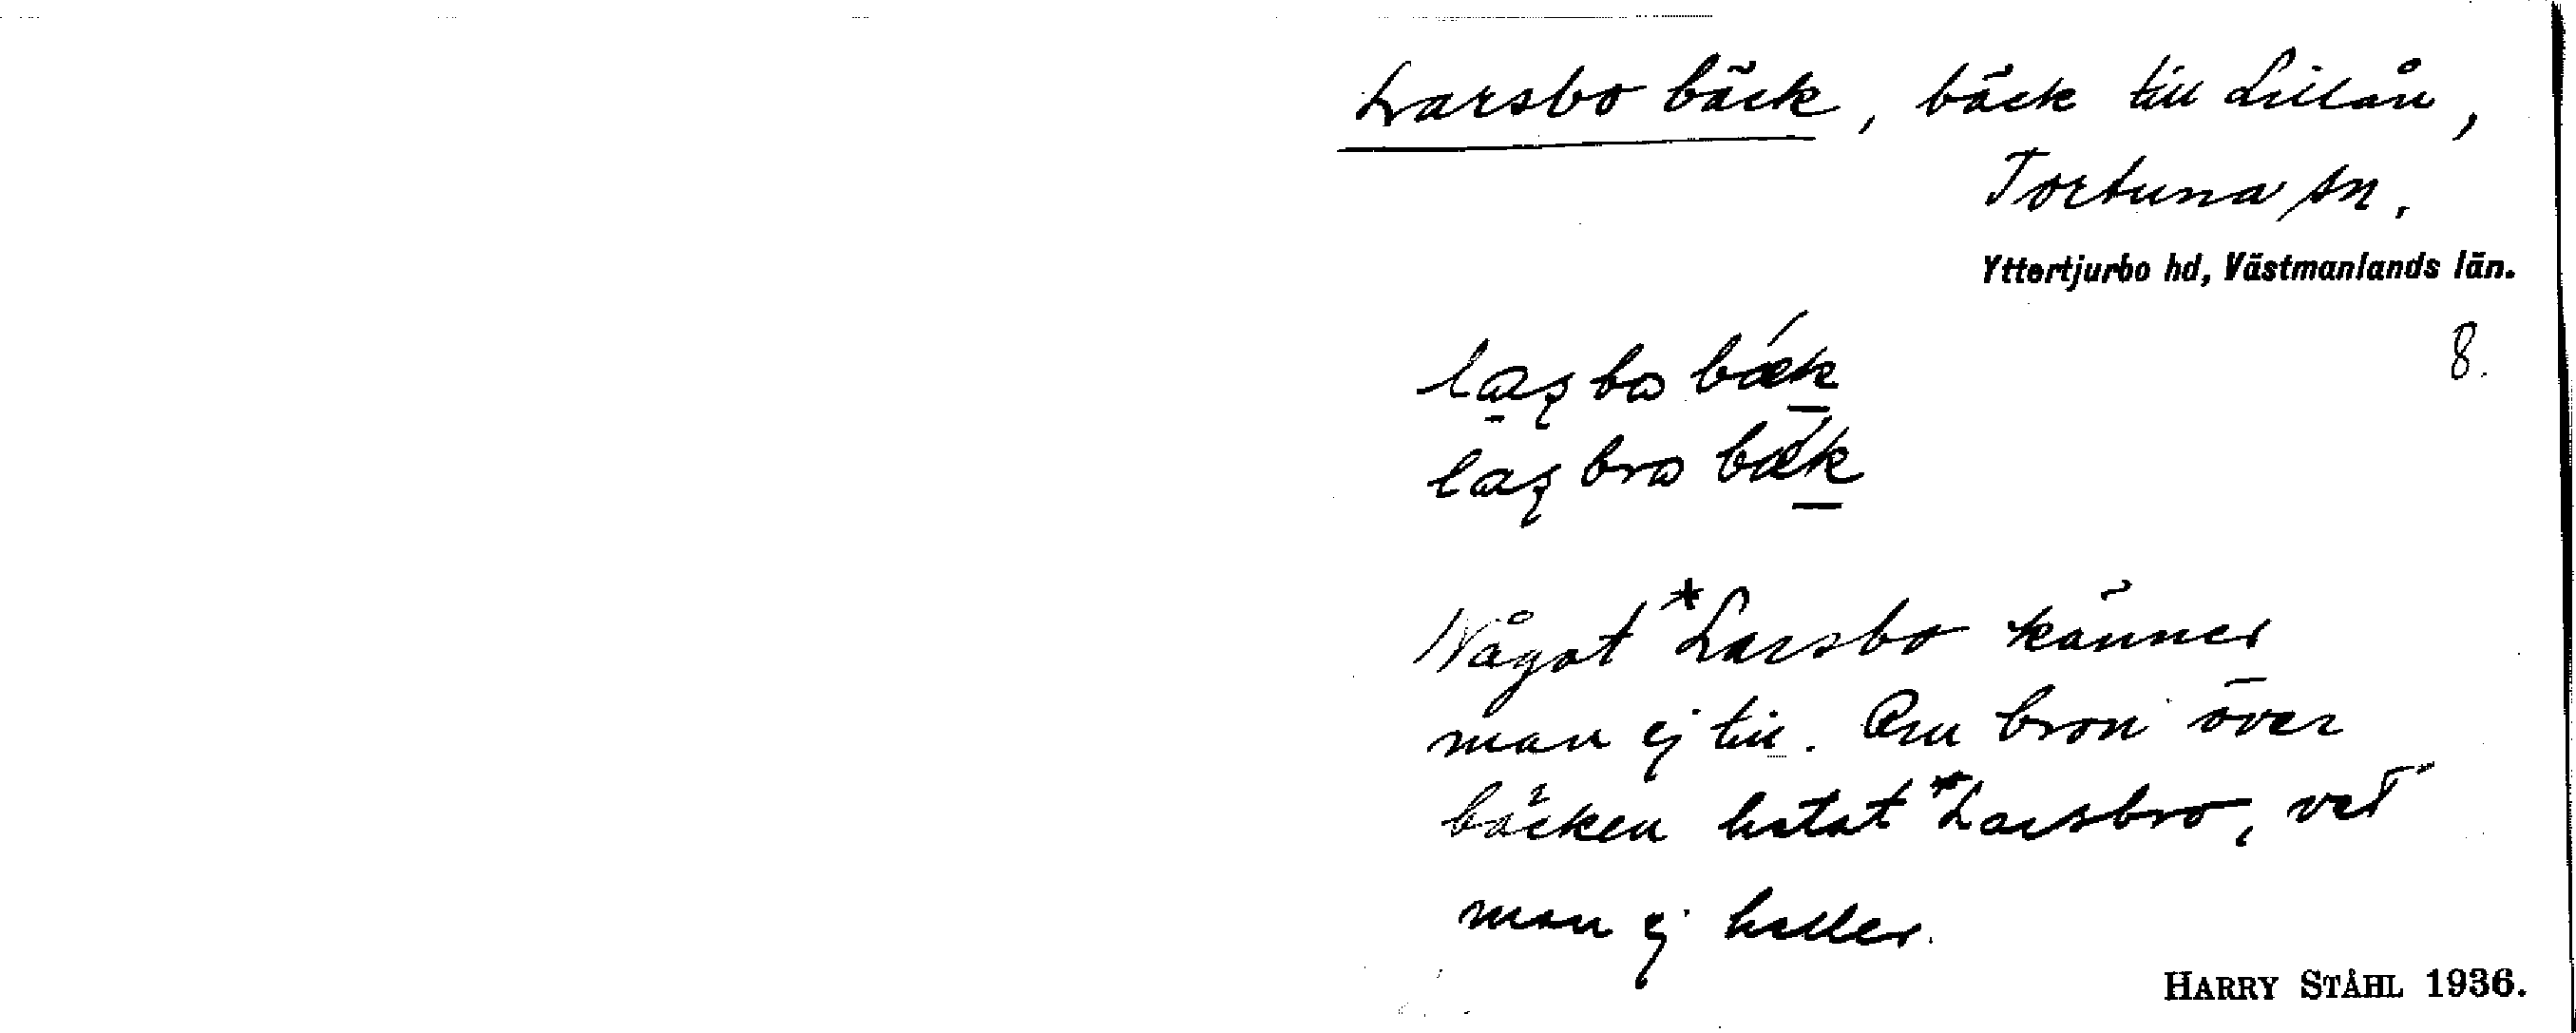 Larsbo bäck, bäck till Lillån,
Tortuna sn.
Yttertjurbo hd, Västmanlands län.
8.
laʂbo bǽk
laʂbro bǽk
Något *Larsbo känner
man ej till. Om bron över
bäcken hetat *Larsbro, vet
man ej heller.
HARRY STÅHL 1936.